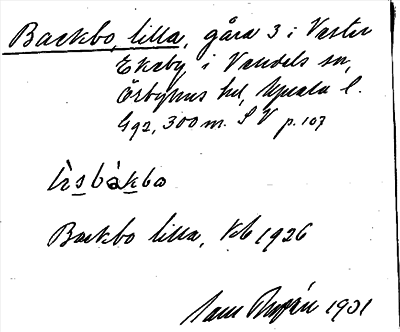 Backbo, lilla, gård 3 i Väster
Ekeby i Vendels sn,
Örbyhus hd, Upsala l.
Gg2, 300 m. S V p. 107
bàkbo
Backbo lilla, Kb 1926
1931